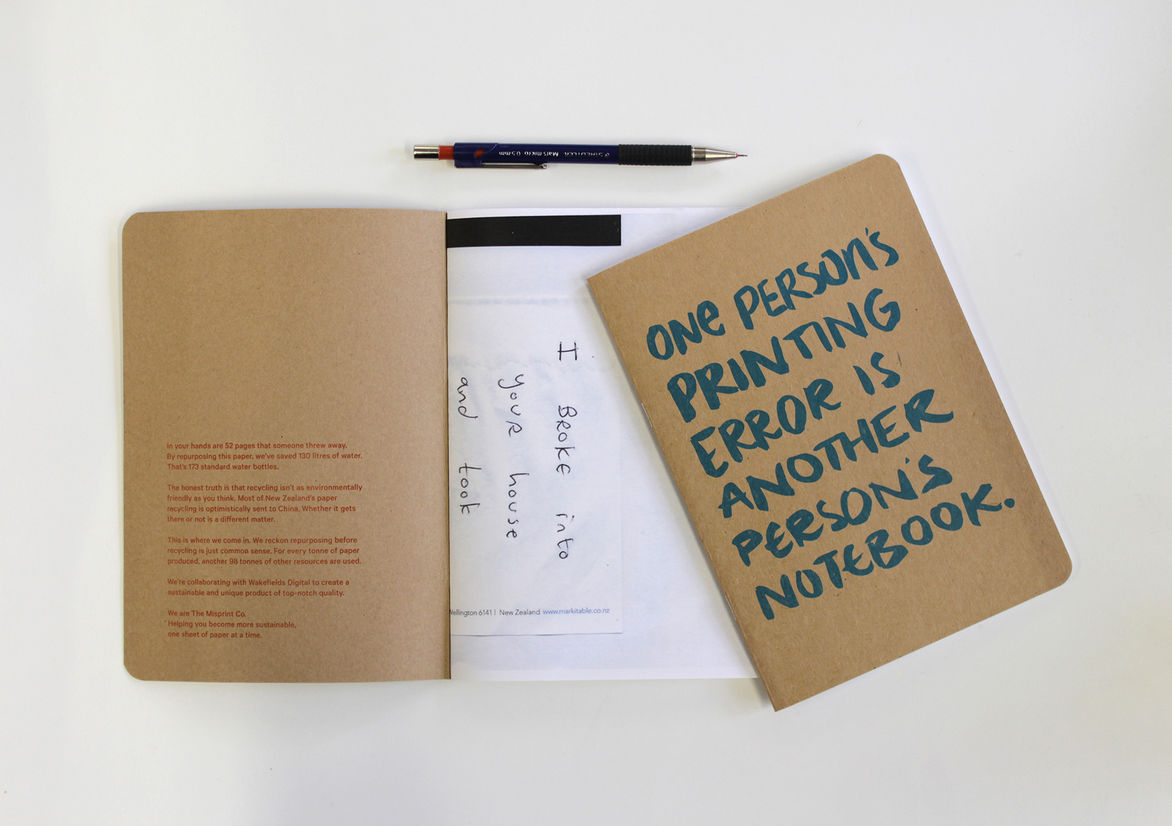 STAEDTLER Mars micro 0.5mm
In your hands are 52 pages that someone threw away.
By repurposing this paper, we've saved 130 litres of water.
That's 173 standard water bottles.
The honest truth is that recycling isn't as environmentally
friendly as you think. Most of New Zealand's paper
recycling is optimistically sent to China. Whether it gets
there or not is a different matter.
This is where we come in. We reckon repurposing before
recycling is just common sense. For every tonne of paper
produced, another 98 tonnes of other resources are used.
We're collaborating with Wakefields Digital to create a
sustainable and unique product of top-notch quality.
We are The Misprint Co.
Helping you become more sustainable,
one sheet of paper at a time.
I Broke into
your house
and took
Wellington 6141 | New Zealand www.markitable.co.nz
ONe PERSON'S
PRINTING
ERROR IS
ANOTHER
PERSON'S
NOTEBOOK.